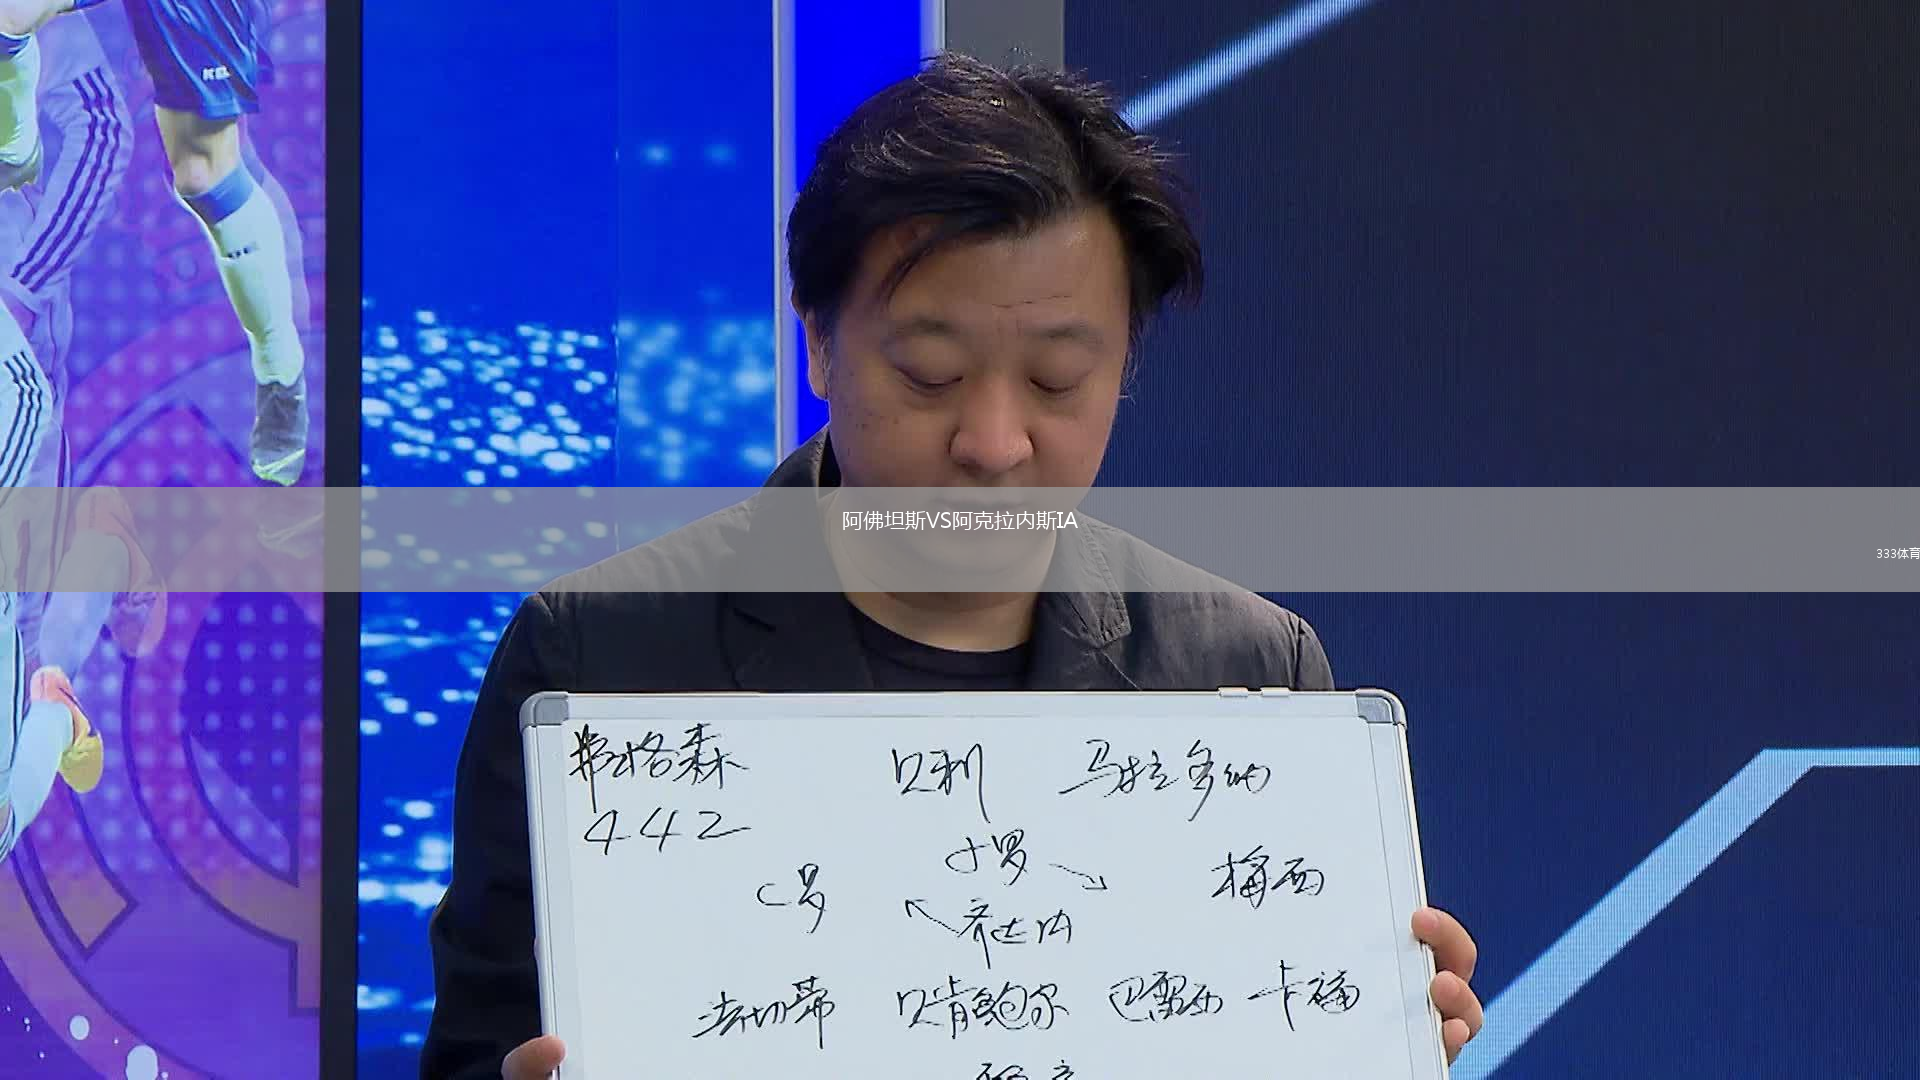 阿佛坦斯VS阿克拉内斯IA
333体育
弗格森 贝利 马拉多纳
442
小罗
C罗 梅西
齐达内
法切蒂 贝肯鲍尔 巴雷西 卡福